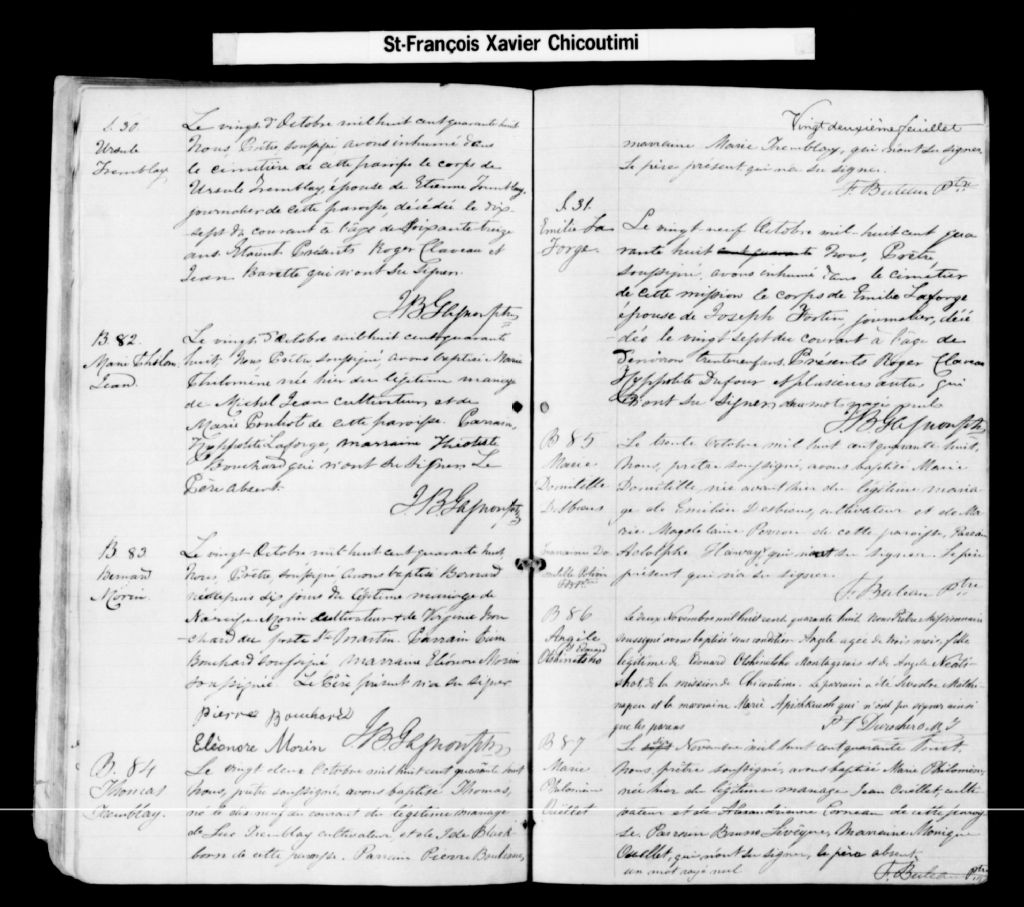 St-François Xavier Chicoutimi
S. 30
Ursule
Tremblay
Le vingt d'Octobre mil huit cent quarante huit
Nous Prêtre soussigné avons inhumé dans
le cimetière de cette paroisse le corps de
Ursule Tremblay, épouse de Etienne Tremblay
journalier de cette paroisse, décédée le dix-
sept du courant à l'âge de Soixante treize
ans. Etaient Présents Roger Claveau et
Jean Barette qui n'ont su signer.
J B Gagnon ptre
B. 82.
Marie
Jean
Le vingt, d'octobre mil huit cent quarante
huit, Nous Prêtre, soussigné, avons baptisé Marie
Philomène née hier du légitime mariage
de Michel Jean cultivateur, et de
Marie de cette paroisse. Parrain,
Hyppolite Laforge, marraine
Bouchard qui n'ont su signer Le
Père absent.
J B Gagnon ptre
B 83
Bernard
Morin.
Le vingt Octobre mil huit cent quarante huit,
Nous, Prêtre, soussigné avons baptisé Bernard
né depuis six jours du légitime mariage de
Narcisse Morin cultivateur & de Virginie Bou
chard du poste St Martin. Parrain
Bouchard soussigné marraine Eléonore Morin
soussignée. Le Père présent n'a su signer
Pierre Bouchard
Eléonore Morin J B Gagnon ptre
B. 84
Thomas
Tremblay.
Le vingt deux Octobre mil huit cent quarante huit
Nous, prêtre soussigné, avons baptisé Thomas,
né le dix neuf du courant du légitime mariage
de Tremblay cultivateur et de Black
born de cette paroisse. Parrain Pierre
Vingt deuxième feuillet
marraine Marie Tremblay, qui n'ont su signer,
Le père présent qui n'a su signer.
F. Buteau Ptre
S. 31.
Emilie La
Forge.
Le vingt-neuf Octobre mil-huit cent qua
rante huit Nous, Prêtre,
soussigné, avons inhumé dans le cimetier
de cette mission le corps de Emilie Laforge
épouse de Joseph Fortin journalier, décé
dée le vingt sept du courant à l'âge de
d'environ trente neuf ans. Présents Roger Claveau
Hyppolite Dufour et plusieurs autres qui
n'ont su signer, deux mots rayés nuls
J B Gagnon ptre
B 85
Marie
Domitille
Desbiens
Le trente Octobre mil huit cent quarante huit,
Nous, prêtre soussigné, avons baptisé Marie
Domitille, née avant hier du légitime maria
ge de Desbiens, cultivateur et de Ma
rie Magdelaine de cette paroisse, Parrain
Adolphe qui n'ont su signer. Le père
présent qui n'a su signer.
Marraine Do
mitille Potvin
F. Buteau Ptre
B 86
Angèle
Edouard
Otshinetsho
Le deux Novembre mil huit cent quarante huit Nous Prêtre Missionnaire
soussigné avons baptisé sous condition Angèle agée de trois mois, fille
légitime de Edouard Otshinetsho Montagnais et de Angèle
de la mission de Chicoutimi. Le parrain a été Silvestre
et la marraine Marie Apishkuesh qui n'ont pu signer ainsi
que les parens
P F Durocher O.M.I
B 87
Marie
Philomène
Ouellet
Le Novembre mil huit cent quarante huit.
Nous, prêtre soussigné, avons baptisé Marie Philomène,
née hier du légitime mariage Jean Ouellet, culti
vateur et de Alexandrine Corneau de cette parois
se. Parrain Bruno Lévêque, Marraine Monique
Ouellet, qui n'ont su signer, le père absent.
un mot rayé nul
F. Buteau Ptre